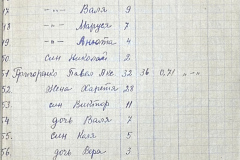 47 -"- Валя 9
48 -"- Маруся 7
49 -"- Анюта 4
50 син Николай 2
51 Григоренко Павел Як. 32 36 0,71 "-"
52. Жена Харетя 28
53. син Виктор 11
54 дочь Валя 7
55. син Коля 5
56. дочь Вера 3